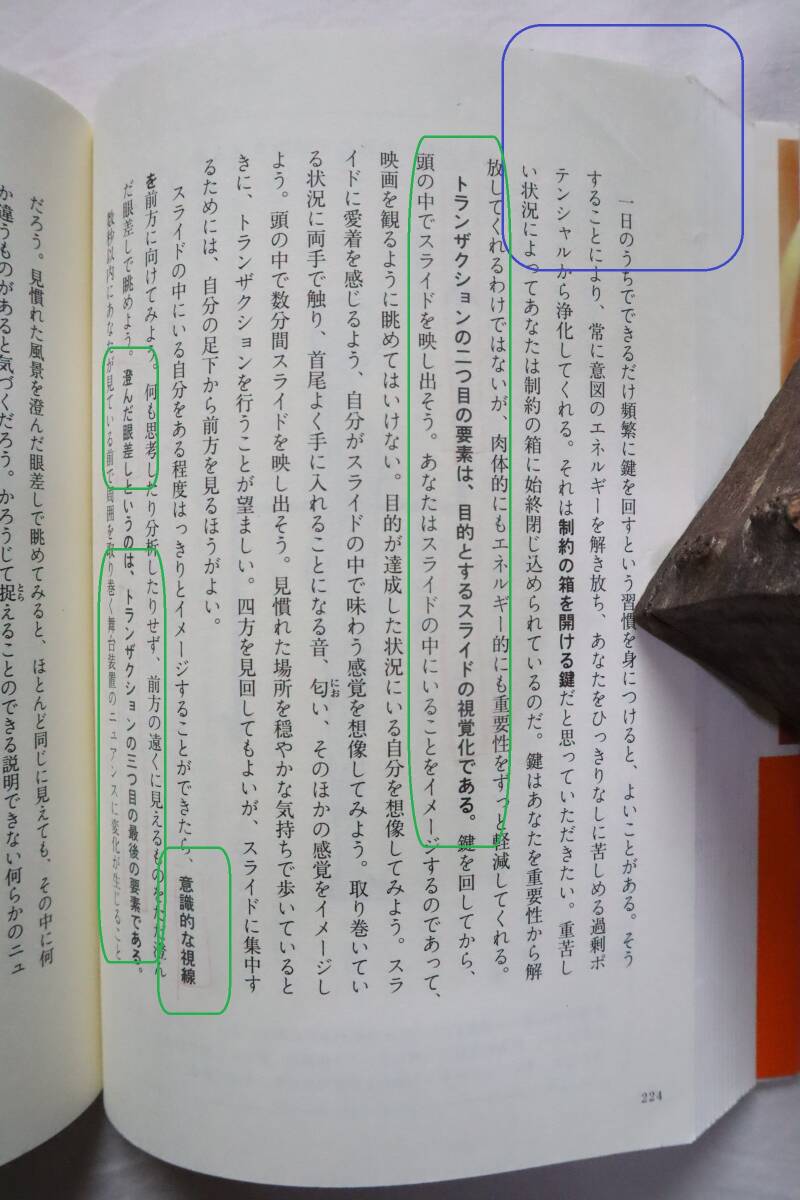 一日のうちでできるだけ頻繁に鍵を回すという習慣を身につけると、よいことがある。そう
することにより、常に意図のエネルギーを解き放ち、あなたをひっきりなしに苦しめる過剰ポ
テンシャルから浄化してくれる。それは制約の箱を開ける鍵だと思っていただきたい。重苦し
い状況によってあなたは制約の箱に始終閉じ込められているのだ。鍵はあなたを重要性から解
放してくれるわけではないが、肉体的にもエネルギー的にも重要性をずっと軽減してくれる。
トランザクションの二つ目の要素は、目的とするスライドの視覚化である。鍵を回してから、
頭の中でスライドを映し出そう。あなたはスライドの中にいることをイメージするのであって、
映画を観るように眺めてはいけない。目的が達成した状況にいる自分を想像してみよう。スラ
イドに愛着を感じるよう、自分がスライドの中で味わう感覚を想像してみよう。取り巻いてい
る状況に両手で触り、首尾よく手に入れることになる音、匂におい、そのほかの感覚をイメージし
よう。頭の中で数分間スライドを映し出そう。見慣れた場所を穏やかな気持ちで歩いていると
きに、トランザクションを行うことが望ましい。四方を見回してもよいが、スライドに集中す
るためには、自分の足下から前方を見るほうがよい。
スライドの中にいる自分をある程度はっきりとイメージすることができたら、意識的な視線
を前方に向けてみよう。何も思考したり分析したりせず、前方の遠くに見えるものをただ澄ん
だ眼差しで眺めよう。澄んだ眼差しというのは、トランザクションの三つ目の最後の要素である。
数秒以内にあなたが見ている前で周囲を取り巻く舞台装置のニュアンスに変化が生じること
224
だろう。見慣れた風景を澄んだ眼差しで眺めてみると、ほとんど同じに見えても、その中に何
か違うものがあると気づくだろう。かろうじて捉とらえることのできる説明できない何らかのニュ